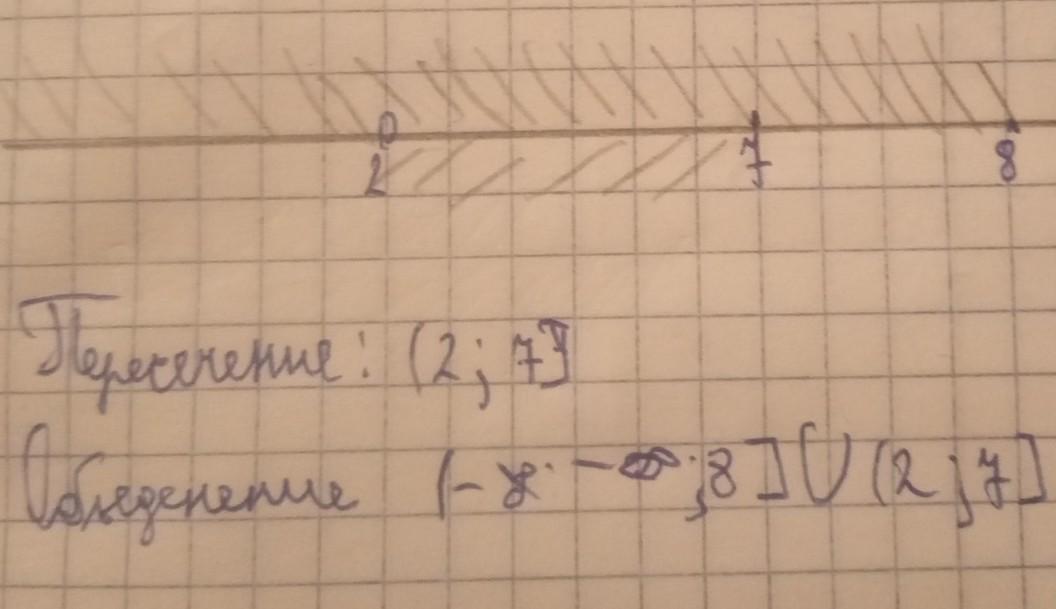 2 7 8
Пересечение: (2; 7]
Объеденение (- -∞; 8] U (2; 7]